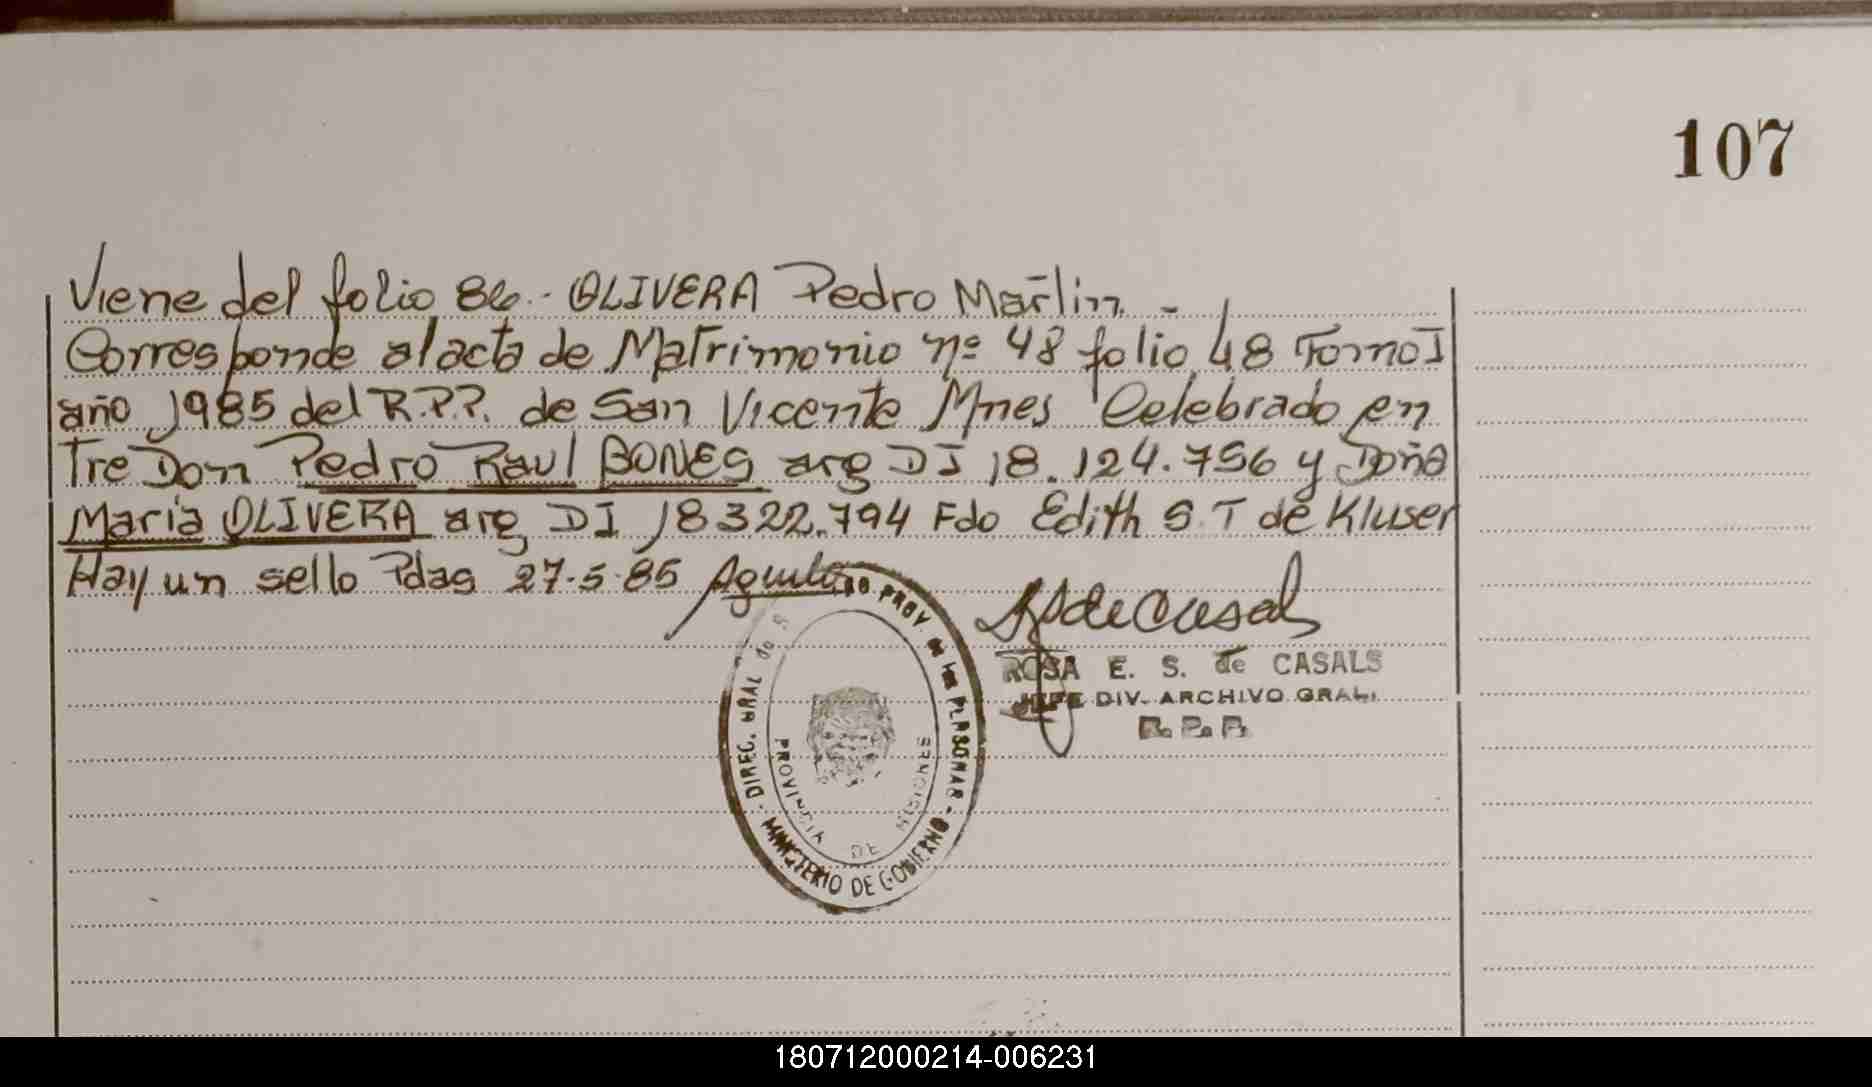 107
Viene del folio 86.- OLIVERA Pedro Martin. -
Corresponde al acta de Matrimonio nº 48 folio 48 Tomo I
año 1985 del R.P.P. de San Vicente Mnes Celebrado en
Tre Don Pedro Raul BONES arg DI 18.124.756 y Doña
Maria OLIVERA arg DI 18322.794 Fdo Edith S.T de Kluser
Hay un sello Pdas 27-5-85
ROSA E. S. de CASALS
JEFE DIV. ARCHIVO GRAL.
R. P. P.
DIREC. GRAL de PROV. de las PERSONAS -
PROVINCIA DE MISIONES
MINISTERIO DE GOBIERNO
180712000214-006231